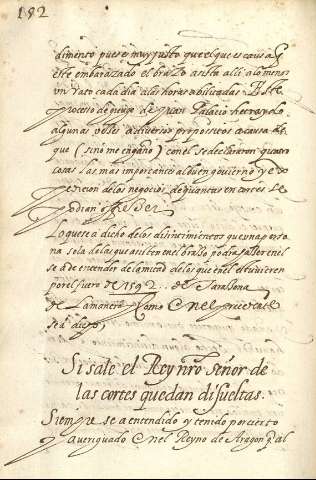 182
dimento pues es muy justo que el que es causa de
este embarazado el brazo asista alli a lo menos
vn rato cada dia a las horas abilitadas. Este
processo de greuge de Juan Palacio he traydo
algunas veces a diversos propositos a causa de
que (sino me engaño) con el se declararon quatro
cosas las mas importantes al buen govierno y es
pedicion de los negocios, de quantas en cortes se
podian ofrescer
Lo que se a dicho de los disentimientos que vna perso
na sola de las que asisten en el brazo podia hazer en el
se a de entender de la mitad de los que en el estuvieren
por el fuero de 1592 de Tarazona
de la manera y como en el
sea dicho,
Si sale el Rey nro señor de
las cortes quedan disueltas.
Siempre se a entendido y tenido por cierto
y averiguado en el Reyno de Aragon q̄ al